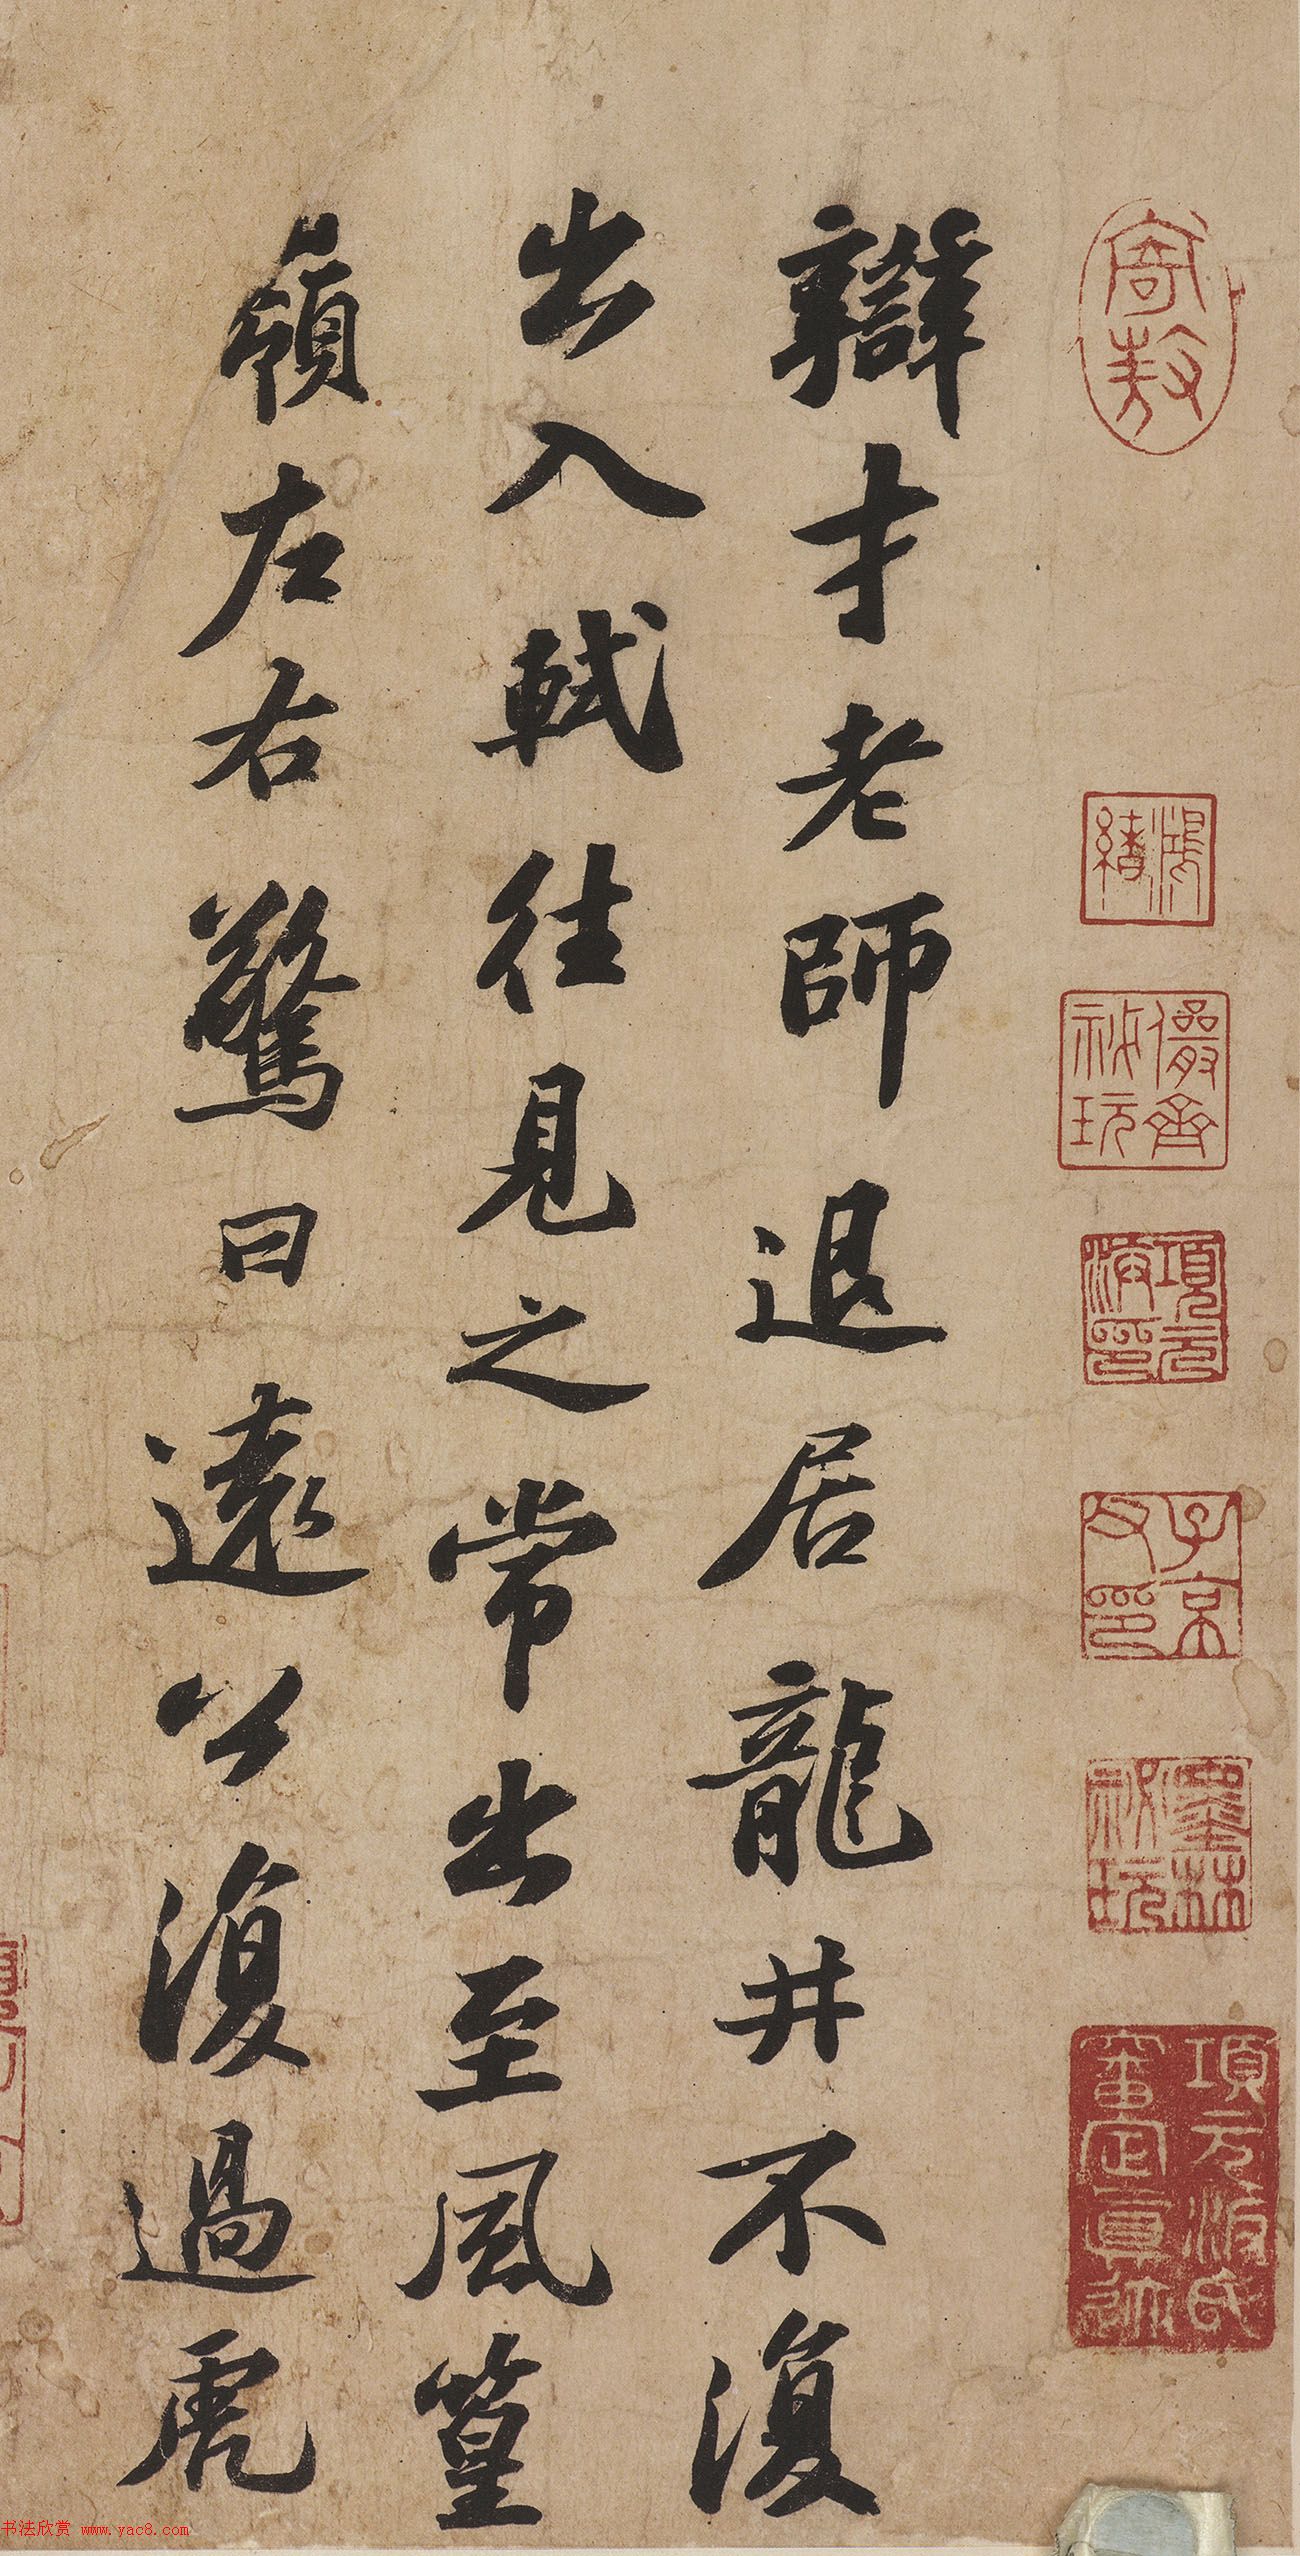 辯才老師退居龍井不復
出入軾往見之常出至風篁
嶺左右驚曰遠公復過虎
寄敖
鴻緒
儼齋秘玩
項元汴印
子京父印
墨林秘玩
項元汴氏審定真跡
书法欣赏 www.yac8.com